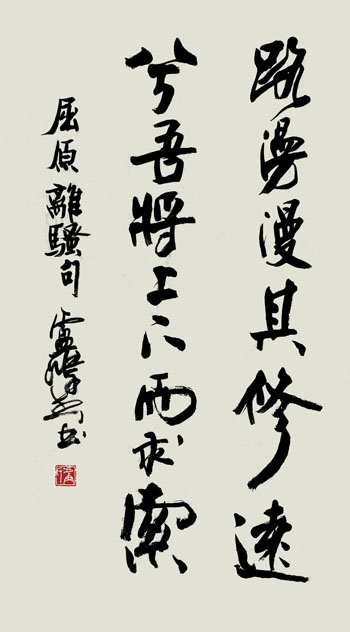 路漫漫其修遠
兮吾將上下而求索
屈原離騷句